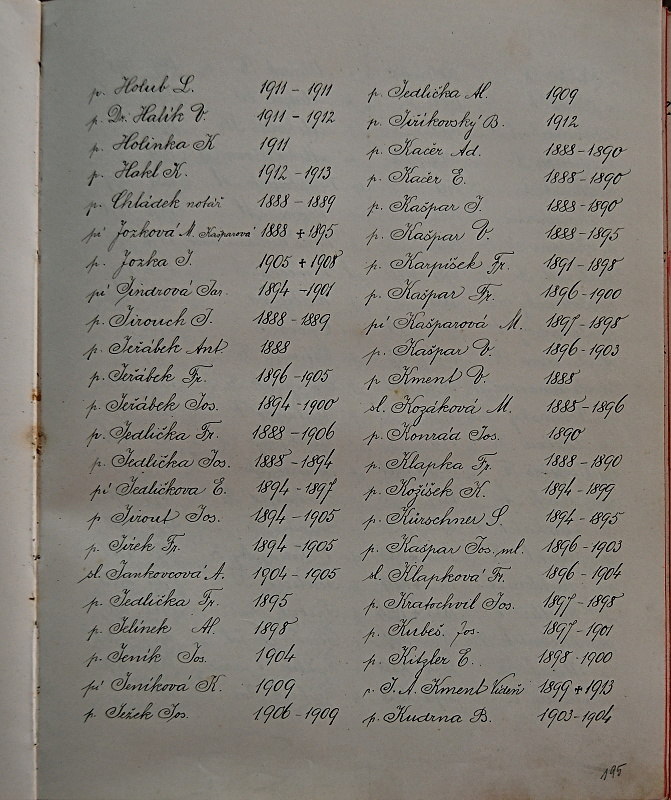 p. Holub L. 1911 - 1911
p. Dr. Halík V. 1911 - 1912
p. Holinka K 1911
p. Hakl K. 1912 - 1913
p. Chládek notář 1888 - 1889
pí Jozková M. Kašparová 1888 + 1895
p. Jozka J. 1905 + 1908
pí Jindrová Jar. 1894 - 1901
p. Jirouch J. 1888 - 1889
p. Jeřábek Ant. 1888
p. Jeřábek Fr. 1896 - 1905
p. Jeřábek Jos. 1894 - 1900
p. Jedlička Fr. 1888 - 1906
p. Jedlička Jos. 1888 - 1894
pí Jedličkova E. 1894 - 1897
p. Jirout Jos. 1894 - 1905
p. Jírek Fr. 1894 - 1905
sl. Jankovcová A. 1904 - 1905
p. Jedlička Fr. 1895
p. Jelínek Al. 1898
p. Jeník Jos. 1904
pí Jeníková K. 1909
p. Ježek Jos. 1906 - 1909
p. Jedlička Al. 1909
p. Jiříkovský B. 1912
p. Kacér Ad. 1888 - 1890
p. Kacér E. 1888 - 1890
p. Kašpar J 1888 - 1890
p. Kašpar V. 1888 - 1895
p. Karpíšek Fr. 1891 - 1898
p. Kašpar Fr. 1896 - 1900
pí Kašparová M. 1897 - 1898
p. Kašpar V. 1896 - 1903
p Kment V. 1888
sl. Kozáková M. 1888 - 1896
p. Konrád Jos. 1890
p. Klapka Fr. 1888 - 1890
p. Kožíšek K. 1894 - 1899
p. Kürschner S. 1894 - 1895
p. Kašpar Jos. ml. 1896 - 1903
sl. Klapková Fr. 1896 - 1904
p. Kratochvíl Jos. 1897 - 1898
p. Kubeš. Jos. 1897 - 1901
p. Kitzler E. 1898 - 1900
p. J. A. Kment Vídeň 1899 + 1913
p. Kudrna B. 1903 - 1904
195